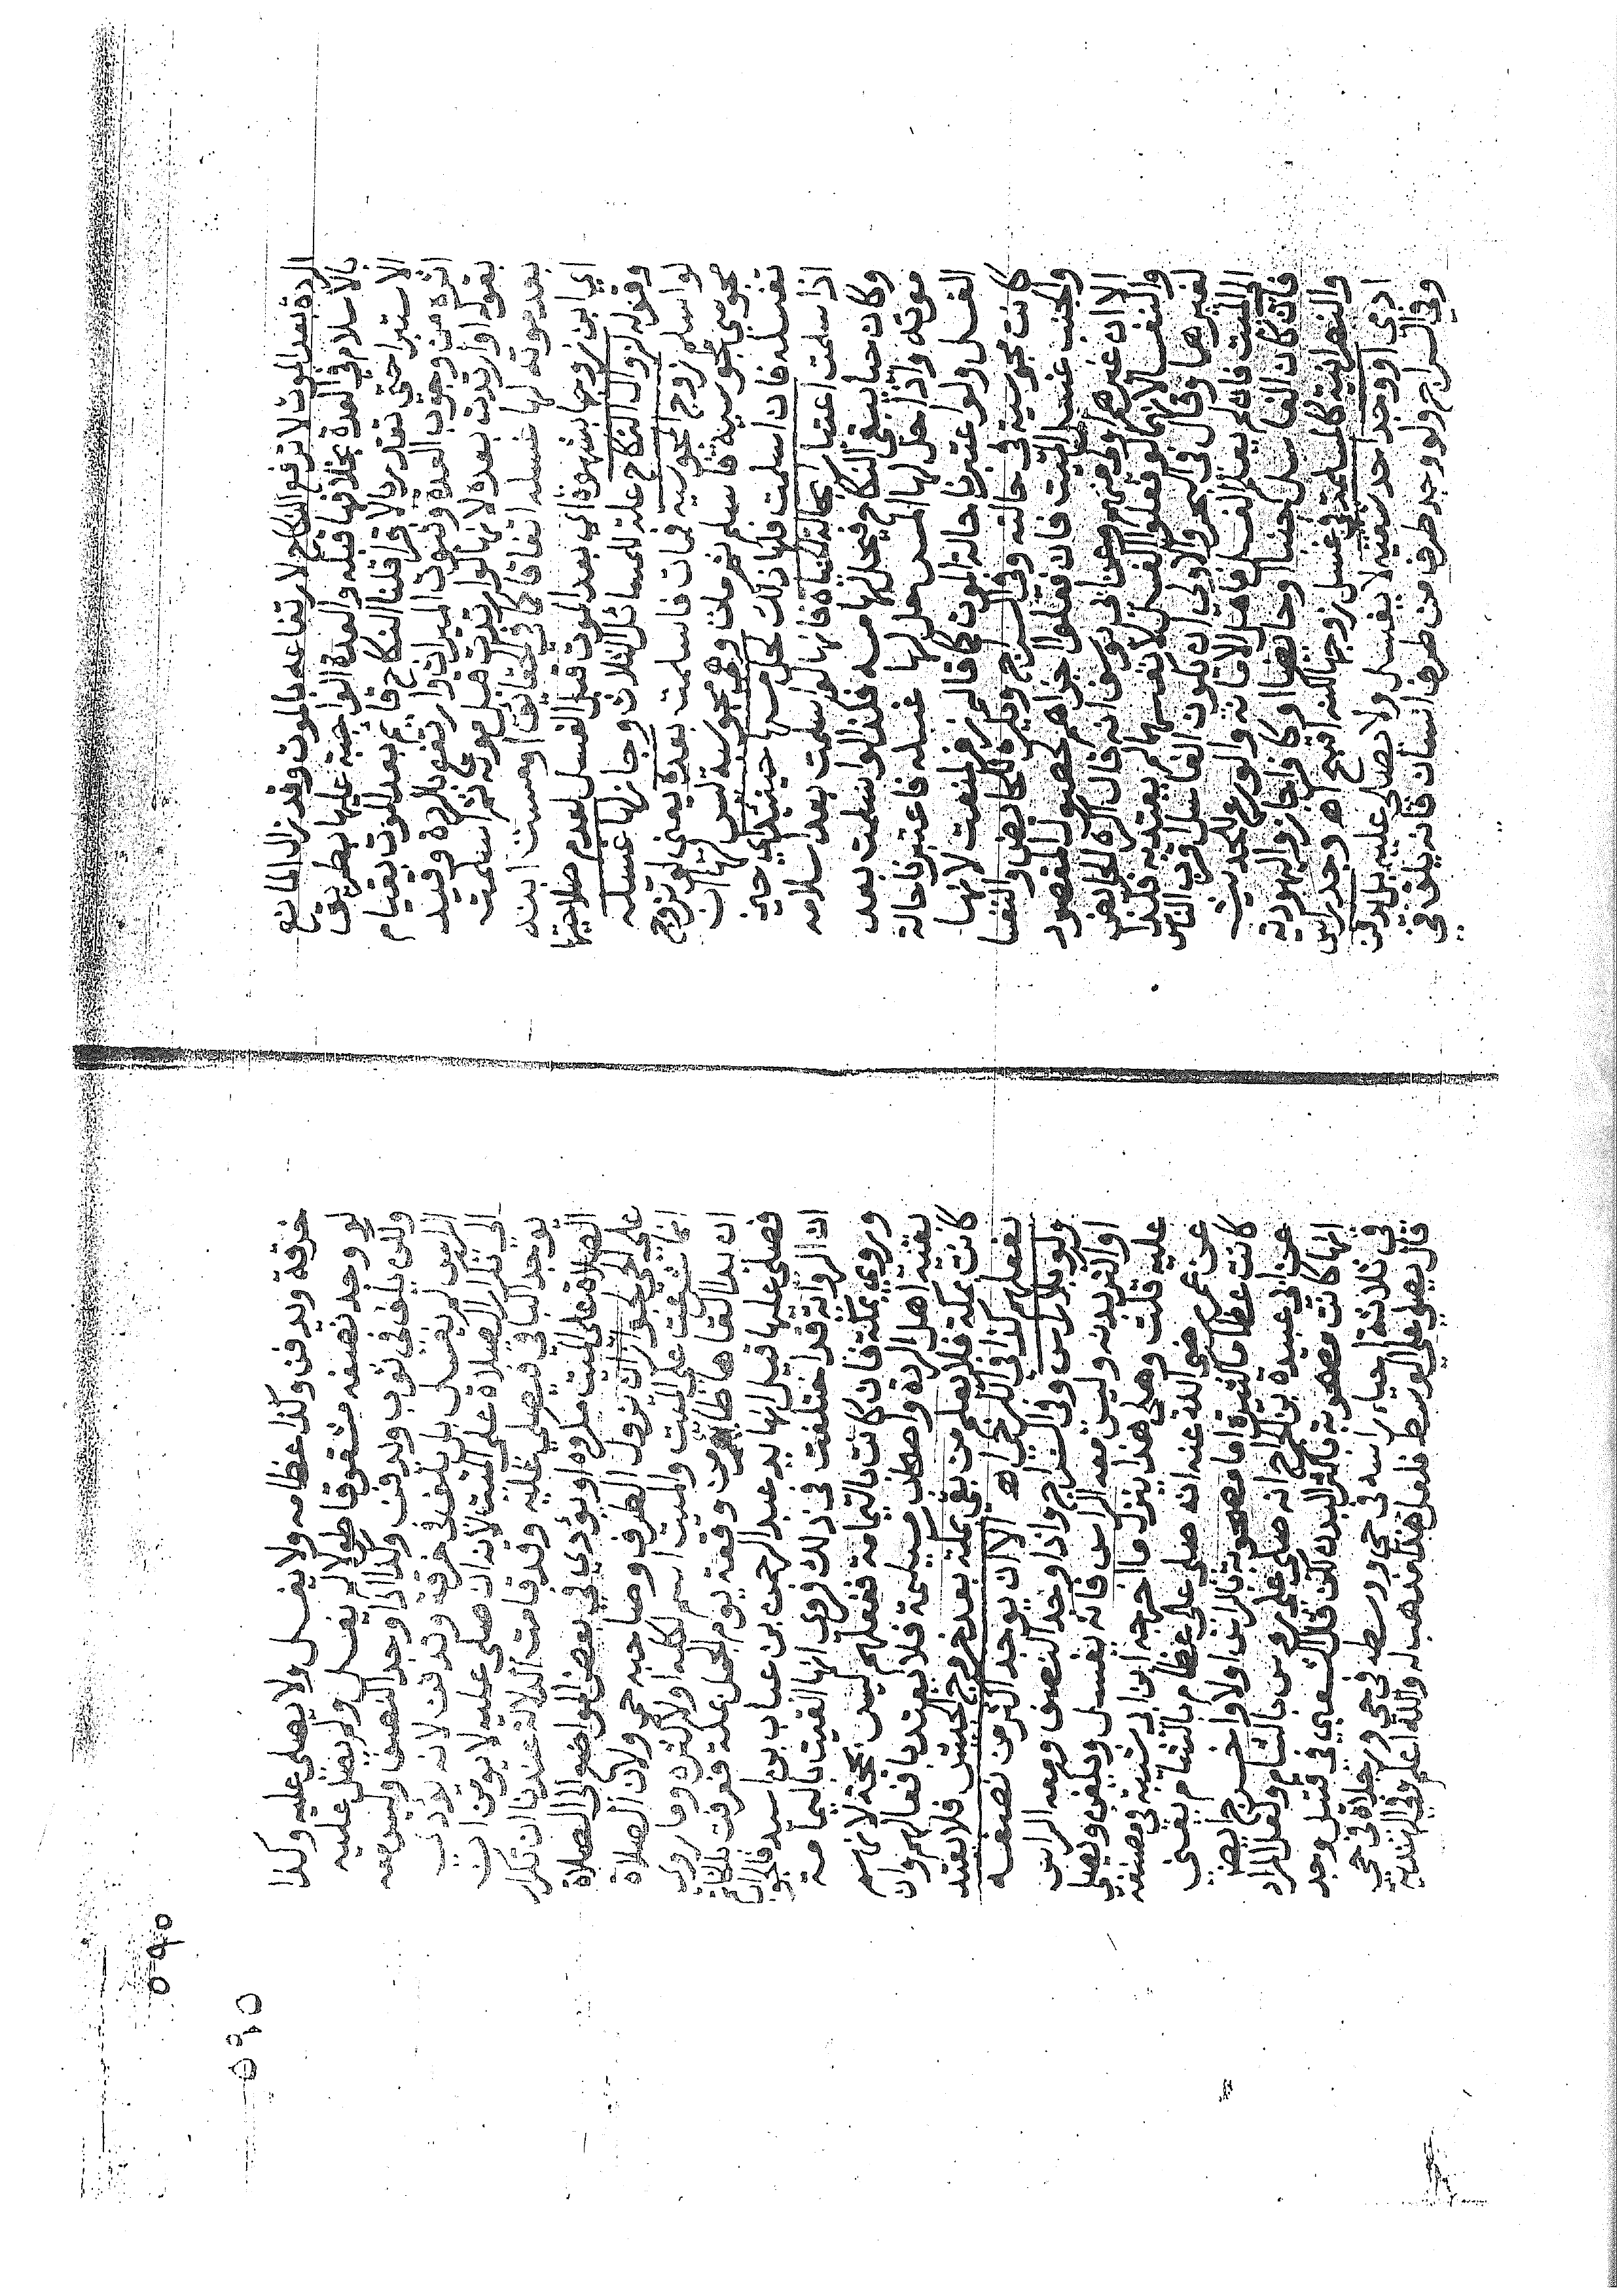 الردة بعد الموت لا ترفع النكاح لارتفاعه بالموت وقد زال المانع
بالاسلام في العدة بخلافها قبله والعدة الواجبة عليها بطريق
الاستبراحتي تقدر بالاقرا قلنا النكاح قائم بعد الموت بقيام
اثره من وجوب العدة وثبوت الميراث وارتفع بالردة وقيد
بقوله او ارتدت بعده لانها لو ارتدت قبل موته ثم اسلمت
بعد موته لها غسله اتفاقا كافي الحقائق او مست ابنه
اي ابن زوجها بشهوة اي بعد الموت قبل الغسل لعدم صلاحيتها
وقوله لزوال النكاح علة للمسائل الثلاث وجاز لها غسله
لو اسلم زوج المجوسية فمات فاسلمت بعده يعني لو تزوج
مجوسي مجوسية فاسلم ثم مات وهي مجوسية ليس لها ان
تغسله فان اسلمت فلها ذلك لحل مسها حينئذ اي حين
اذا سلمت اعتبارا بحالة الحياة فانها لو اسلمت بعد اسلامه
وكان حيا يبقى النكاح فيحل لها مسه فكذا لو اسلمت بعد
موته واذا حل لها المس حل لها غسله فاعتبرنا حالة
الغسل ولو اعتبرنا حالة الموت كما قال زفر لمنعت لانها
كانت مجوسية في حالته وفي السراج ويكره للحائض والنفسا
والجنب غسل الميت فان فعلوا اجزاهم لحصول المقصود
الا ان غيرهم اولى منهم وعن ابي يوسف انه قال اكره للحائض
والنفسا لانهما لو فعلوا الغسل لانفسهما لم يعتد به فكذا
لغيرهما وقال في البحر والاولى ان يكون الغاسل اقرب الناس
الى الميت فان لم يعلم الغسل فاهل الامانة والورع للحديث
فان كان الغاسل جنبا او حائضا او كافرا جاز واليهودية
والنصرانية كالمسلمة في غسل زوجها لكنه اقبح اه وجد راس
ادمي او وجد احد شقيه لا يغسل ولا يصلى عليه بل يدفن
وفي السراج ولو وجد طرف من اطراف انسان فانه يلف في
خرقة ويدفن وكذا عظامه ولا يغسل ولا يصلى عليه وكذا
لو وجد نصفه مشقوقا طولا لم يغسل ولم يصل عليه
ولكن يلف في ثوب ويدفن وكذا اذا وجد النصف وليس معه
الراس لم يغسل بل يلف في خرقة وتدفن لانه يودي
الى تكرار الصلاة على الميت لانه ان صلى عليه لا يومن ان
يوجد الباقي فيصلى عليه وقد قامت الدلالة عندنا ان تكرار
الصلاة على الميت مكروه او يؤدي في بعض المواضع الى الصلاة
على الحي لجواز ان يزول الطرف وصاحبه حي ولان الصلاة
انما شرعت على الميت والميت اسم لكله او لاكثره وما روي
ان يدا القاها طائر من وقعة يوم الجمل بمكة فعرفت بالخاتم
فصلى عليها قيل انها يد عبد الرحمن بن عتاب بن اسيد فالجواب
ان الرواية قد اختلفت في ذلك فروي انها القيت باليمامة
وروي بمكة فان كانت باليمامة ففعلهم ليس بحجة لانهم
بقية اهل الردة واصحاب مسيلمة فلا يعتد بافعالهم وان
كانت بمكة فلا يعلم من بقي بمكة بعد خروج الجيش فلا يعتد
بفعلهم كذا في الكرخي اه الا ان يوجد اكثر من نصفه
ولو بلا راس وفي السراج واذا وجد النصف ومعه الراس
او اكثر بدنه وليس معه الراس فانه يغسل ويكفن ويصلى
عليه قلت وعلى هذا ينزل ما اخرجه ابن ابي شيبة في مصنفه
عن عمر رضي الله عنه انه صلى على عظام بالشام يعني
كانت عظاما كثيرة اما مصحوبة بالراس او لا واخرج ايضا
عن ابي عبيدة بن الجراح انه صلى على روس بالشام ولعل المراد
انها كانت مصحوبة باكثر البدن لكن قال الشعبي في قتيل وجد
في ثلاثة احياء راسه في حي ووسطه في حي ورجلاه في حي
قال يصلى على الوسط فلعل هذا مذهب له والله اعلم وفي الهندية
٥٩٥
٥٩٥